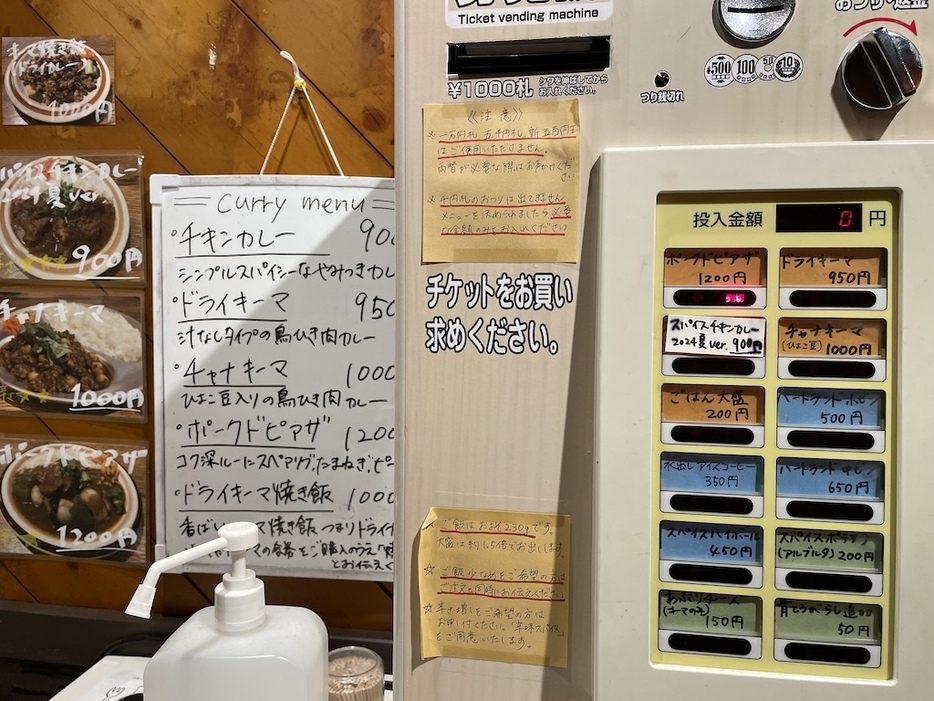 まで焼き飯
(ドライカレー)
1000円
スパイスチキンカレー
2024夏ver.
900円
チャナキーマ
1000円
ポークドピアザ
1200円
= curry menu =
チキンカレー 900
シンプルスパイシーなやみつきカレ
ドライキーマ 950
汁なしタイプの鳥ひき肉カレー
チャナキーマ 1000
ひよこ豆入りの鳥ひき肉カレー
ポークドピアザ 1200
コク深ルーにスペアリブ、たまねぎ、ピー
ドライキーマ焼き飯 1000
香ばしい マ焼き飯 つまりドライカ
マの食券をご購入のうえ「焼
とお伝えく
Ticket vending machine
¥1000札
シワを伸ばしてから
お入れください。
つり銭切れ
500
100
50
10
おつり・返金
《注意》
※一万円札、五千円札、新五百円玉
はご使用いただけません。
両替が必要な際はお声がけくだ
さい
※千円札のおつりは出てきません
メニューを決められましたら必要
な金額のみをお入れください
チケットをお買い
求めください。
☆ご飯はおよそ230gです。
大盛は約1.5倍でお出しします。
☆ご飯少なめをご希望の方は
ご注文と同時にお伝えください
☆辛さ増しをご希望の方は
お申し付けください。「辛味スパイス」
をご用意いたします。
投入金額 0 円
ポークドピアザ
1200円
ドライキーマ
950円
スパイスチキンカレー
2024夏ver. 900円
チャナキーマ
(ひよこ豆) 1000円
ごはん大盛
200円
ハートランド小ビン
500円
水出しアイスコーヒー
350円
ハートランド中ビン
650円
スパイスハイボール
450円
スパイスポテサラ
(アルブルタ) 200円
あぶりチーズ
(キーマのみ)
150円
青とうがらし追加
50円